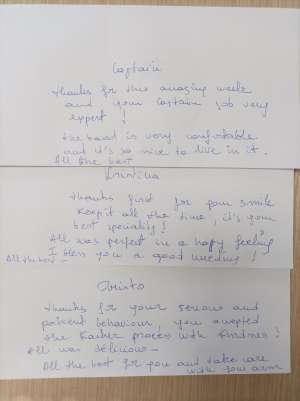 Captain
Thanks for this amazing week
and your Captain job very
expert !
The boad is very comfortable
and it's so nice to live in it.
All the best
Thanks first for your smile
Keep it all the time, it's your
best speciality !
All was perfect in a happy feeling
I bless you a good wedding !
All the best -
Christo
Thanks for your serious and
patient behaviour, you accepted
the Kasher process with kindness !
All was delicious -
All the best for you and take care
with your arm